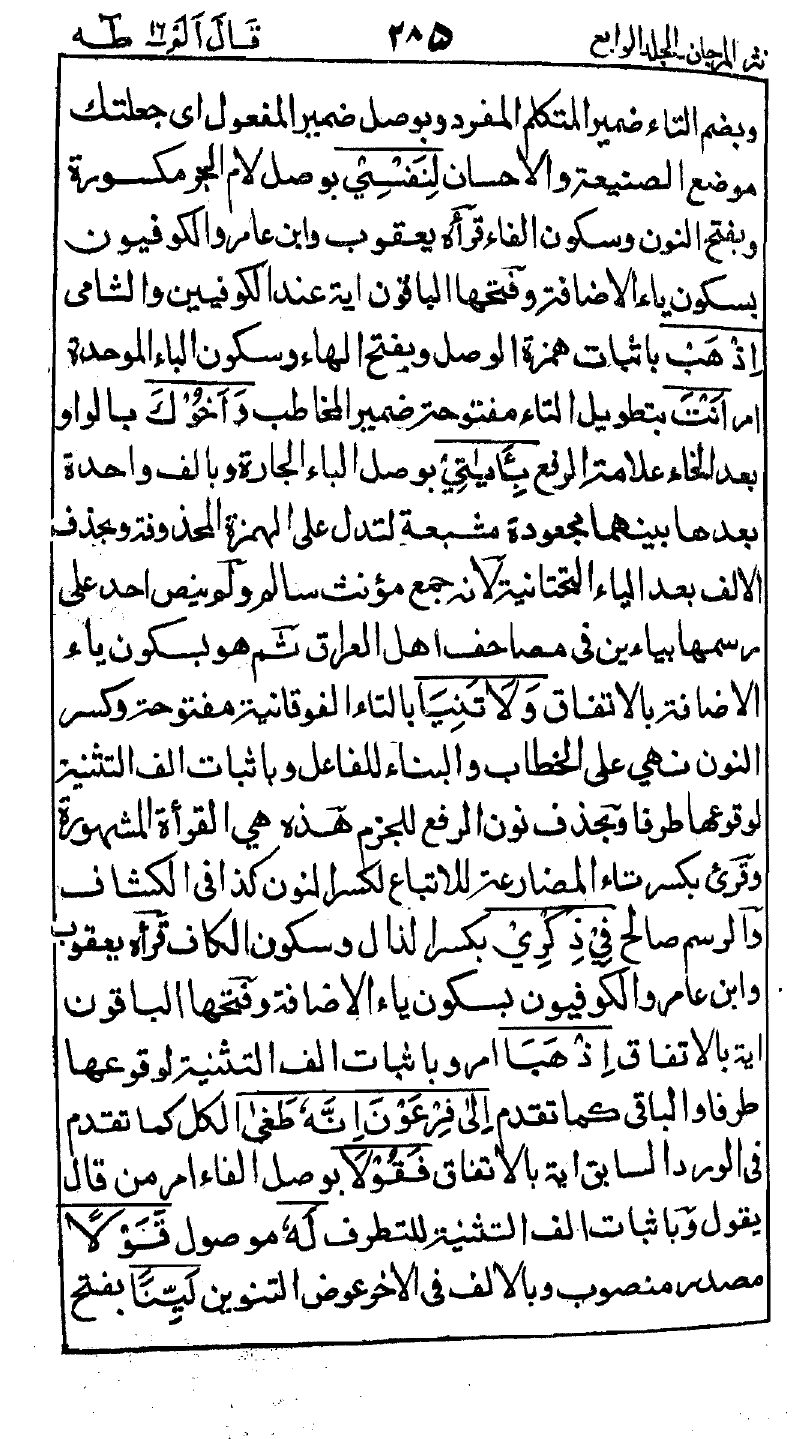 نثر المرجان ـ المجلد الرابع ٢٨٥ قَالَ اَلَمْ ١٦ طٰهٰ
وبضم التاء ضمير المتكلم المفرد وبوصل ضمير المفعول اى جعلتك
موضع الصنيعة والاحسان لِنَفْسِىْ بوصل لام الجر مكسورة
وبفتح النون وسكون الفاء قرأه يعقوب وابن عامر والكوفيون
بسكون ياء الاضافة وفتحها الباقون اية عند الكوفيين والشامى
اِذْهَبْ باثبات همزة الوصل وبفتح الهاء وسكون الباء الموحدة
امر اَنْتَ بتطويل التاء مفتوحة ضمير المخاطب وَاَخُوْكَ بالواو
بعد الخاء علامة الرفع بِئَايٰتِىْ بوصل الباء الجارة وبالف واحدة
بعدها بينهما مجعودة مشبعة لتدل على الهمزة المحذوفة وبحذف
الالف بعد الياء التحتانية لانه جمع مؤنث سالم ولم ينص احد على
رسمها بياءين فى مصاحف اهل العراق ثم هو بسكون ياء
الاضافة بالاتفاق وَلَا تَنِيَا بالتاء الفوقانية مفتوحة وكسر
النون نهي على الخطاب والبناء للفاعل وباثبات الف التثنية
لوقوعها طرفا وبحذف نون الرفع للجزم هذه هي القرأة المشهورة
وقرئ بكسر تاء المضارعة للاتباع لكسر النون كذا فى الكشاف
والرسم صالح فِىْ ذِكْرِىْ بكسر الذال وسكون الكاف قرأه يعقوب
وابن عامر والكوفيون بسكون ياء الاضافة وفتحها الباقون
اية بالاتفاق اِذْهَبَا امر وباثبات الف التثنية لوقوعها
طرفا والباقى كما تقدم اِلٰى فِرْعَوْنَ اِنَّهٗ طَغٰى الكل كما تقدم
فى الورد السابق اية بالاتفاق فَقُوْلَا بوصل الفاء امر من قال
يقول وباثبات الف التثنية للتطرف لَهٗ موصول قَوْلًا
مصدر منصوب وبالالف فى الاخر عوض التنوين لَيِّنًا بفتح